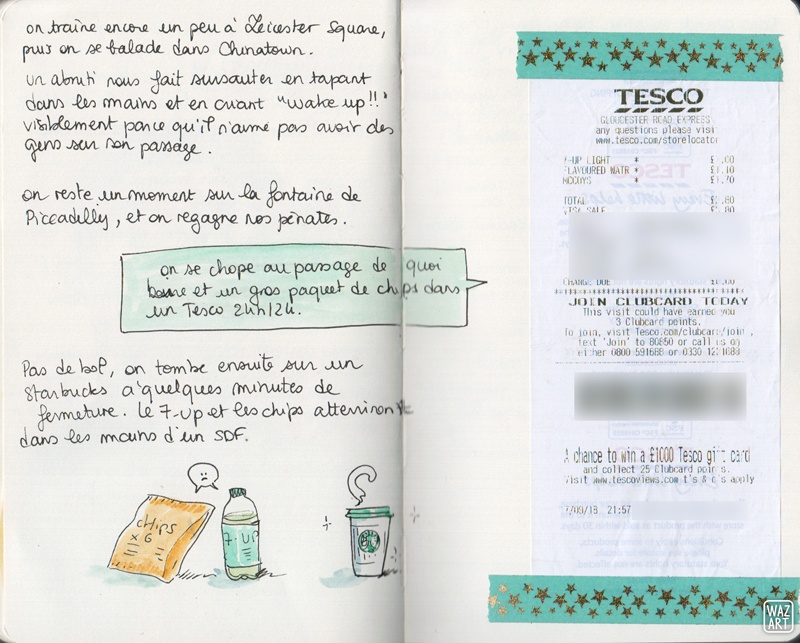 on traîne encore un peu à Leicester Square,
puis on se balade dans Chinatown.
un abruti nous fait sursauter en tapant
dans les mains et en criant "wake up!!"
visiblement parce qu'il n'aime pas avoir des
gens sur son passage.
on reste un moment sur la fontaine de
Piccadilly, et on regagne nos pénates.
on se chope au passage de quoi
boire et un gros paquet de chips dans
un Tesco 24h/24.
Pas de bol, on tombe ensuite sur un
Starbucks à quelques minutes de
fermeture. Le 7-up et les chips atterriront
dans les mains d'un SDF.
CHIPS
x 6
7-UP
TESCO
GLOUCESTER ROAD EXPRESS
any questions please visit
www.tesco.com/storelocator
7-UP LIGHT *
FLAVOURED WATR * £1.10
MCCOYS * £1.70
TOTAL
VISA SALE
CHANGE DUE £0.00
JOIN CLUBCARD TODAY
This visit could have earned you
3 Clubcard points.
To join, visit Tesco.com/clubcard/join ,
text 'Join' to 80850 or call us on
either 0800 591688 or 0330 1231688
A chance to win a £1000 Tesco gift card
and collect 25 Clubcard points.
Visit www.tescoviews.com t's & c's apply
21:57
WAZ
ART